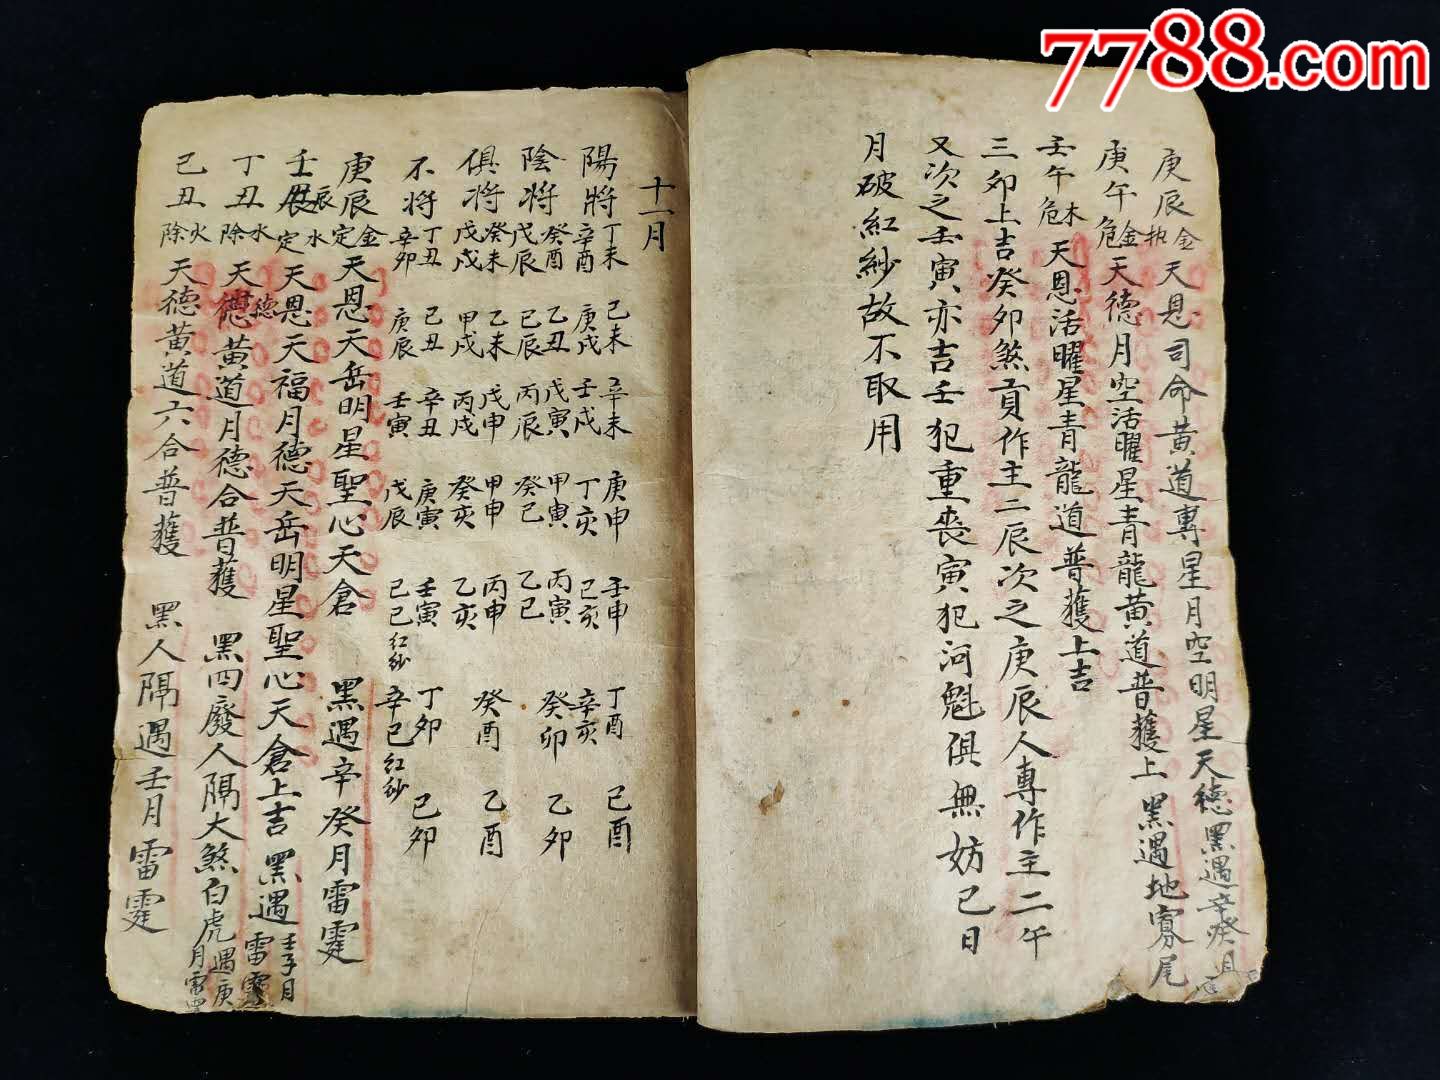 7788.com
庚辰金执天恩司命黄道專星月空明星天德黑遇辛癸月
庚午金危天德月空活曜星青龍黄道普護上黑遇地寡尾
壬午木危天恩活曜星青龍道普護上吉
三卯上吉癸卯煞貢作主二辰次之庚辰人專作主二午
又次之壬寅亦吉壬犯重喪寅犯河魁俱無妨己日
月破紅紗故不取用
十一月
陽將丁未己未辛未庚申壬申丁酉己酉辛酉庚戌壬戌丁亥己亥辛亥
陰將癸酉乙丑戊寅甲寅丙寅癸卯乙卯戊辰己辰丙辰癸巳乙巳
俱將癸未乙未戊申甲申丙申癸酉乙酉戊戌甲戌丙戌癸亥乙亥
不將丁丑己丑辛丑庚寅壬寅丁卯己卯辛卯庚辰壬寅戊辰己巳紅紗辛巳紅紗
庚辰金定天恩天岳明星聖心天倉 黑遇辛癸月雷霆
壬辰水定天恩天福月德天岳明星聖心天倉上吉 黑遇壬子月雷霆
丁丑水除天德黄道月德合普護 黑四廢人隔大煞白虎遇庚月雷
己丑火除天德黄道六合普護 黑人隔遇壬月雷霆